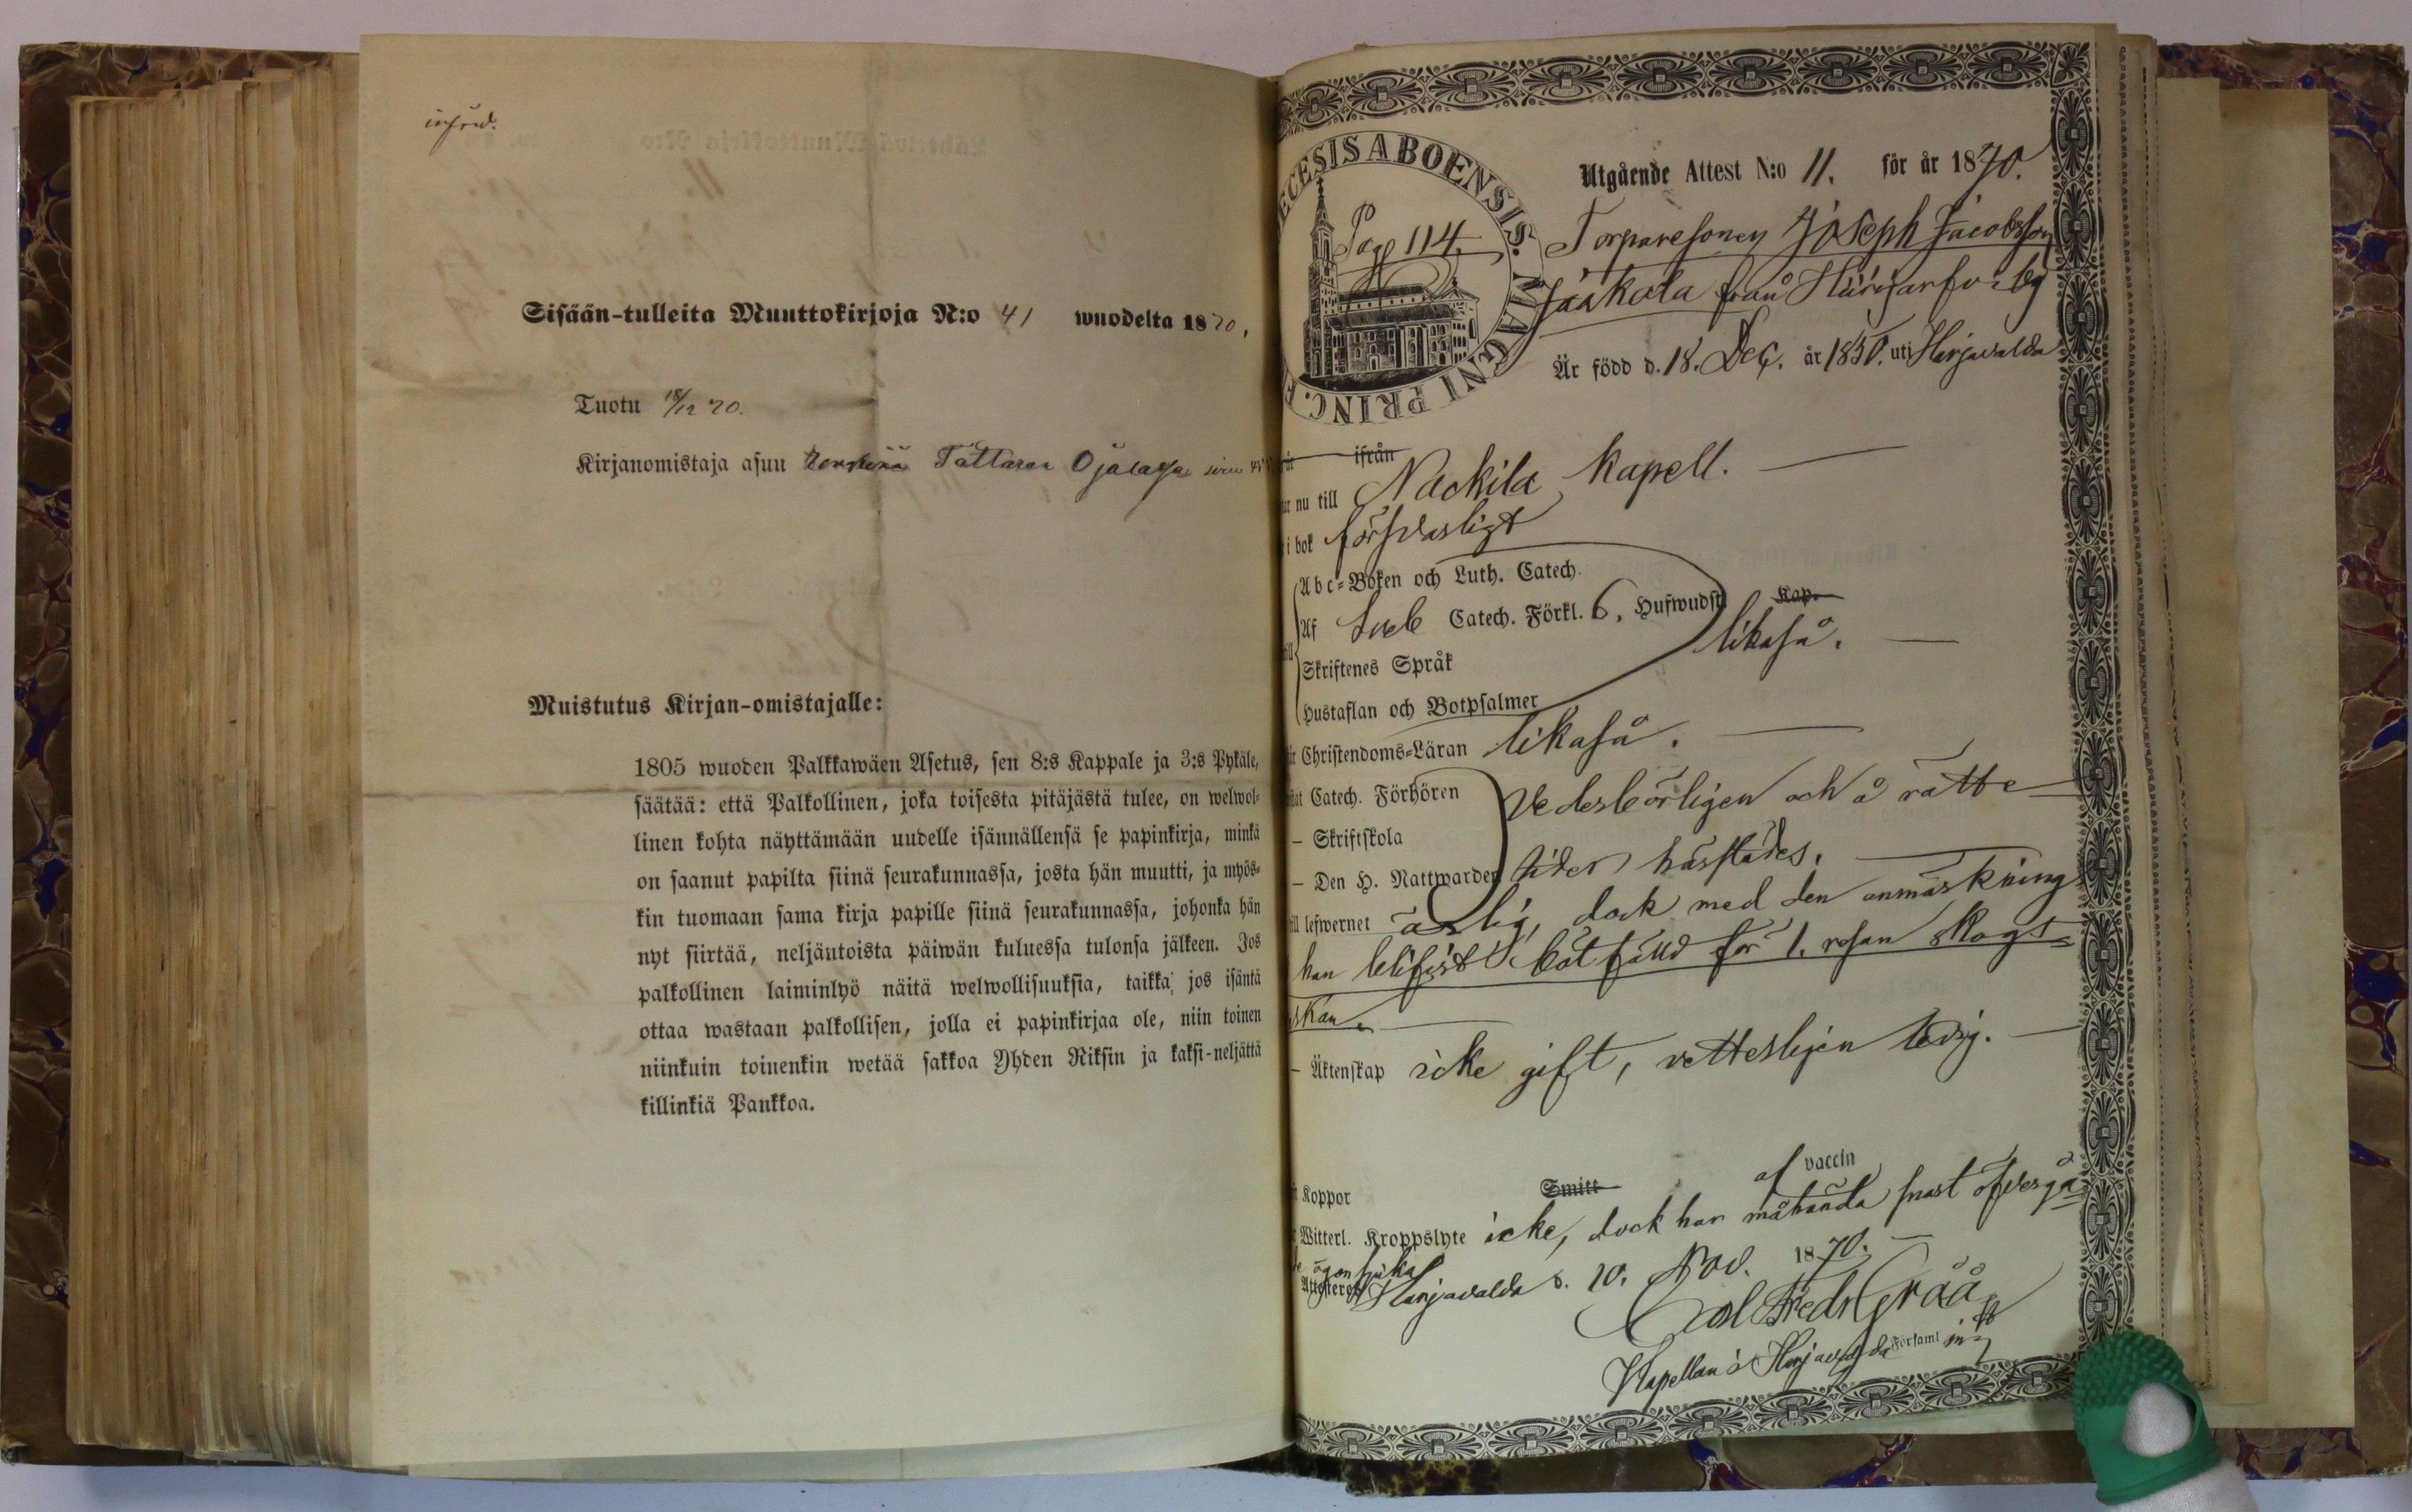 inford.
Sisään-tulleita Muuttokirjoja N:o 41 wuodelta 1870.
Tuotu 18/12 70.
Kirjanomistaja asuu Tattaran Ojalassa
Muistutus Kirjan-omistajalle:
1805 wuoden Palkkawäen Asetus, sen 8:s Kappale ja 3:s Pykäle,
säätää: että Palkollinen, joka toisesta pitäjästä tulee, on welwol-
linen kohta näyttämään uudelle isännällensä se papinkirja, minkä
on saanut papilta siinä seurakunnassa, josta hän muutti, ja myös-
kin tuomaan sama kirja papille siinä seurakunnassa, johonka hän
nyt siirtää, neljäntoista päiwän kuluessa tulonsa jälkeen. Jos
palkollinen laiminlyö näitä welwollisuuksia, taikka, jos isäntä
ottaa wastaan palkollisen, jolla ei papinkirjaa ole, niin toinen
niinkuin toinenkin wetää sakkoa Yhden Riksin ja kaksi-neljättä
killinkiä Pankkoa.
ECESIS ABOENSIS. MAGNI PRINC.
Pag 114.
Utgående Attest N:o 11. för år 1870.
Torparesonen Joseph Jacobsson
Jaakola från Hiirijärvi by
Är född d. 18. Dec. år 1850. uti Harjavalda
ifrån
nu till Nackila Kapell.
i bok försvarligt
Abc-Boken och Luth. Catech.
Af Sveb Catech. Förkl. 6, Hufwudst. Kap.
likaså.
Skriftenes Språk
Hustaflan och Botpsalmer
Christendoms-Läran likaså.
Catech. Förhören vederbörligen och å rätta
– Skriftskola
– Den H. Nattwarden tider härstädes.
lefwernet ärlig, dock med den anmärkning
han blifvit bötfälld för 1. resan skogs-
åskan
– Äktenskap icke gift, vetterligen ledig.
Koppor Smitt af vaccin
Witterl. Kroppslyte icke, dock har måhända snart öfvergå-
ögonsjuka
Attesterar Harjavalda d. 10. Nov. 1870.
Carl Fredr Gråå
Kapellan i Harjavalda Församling